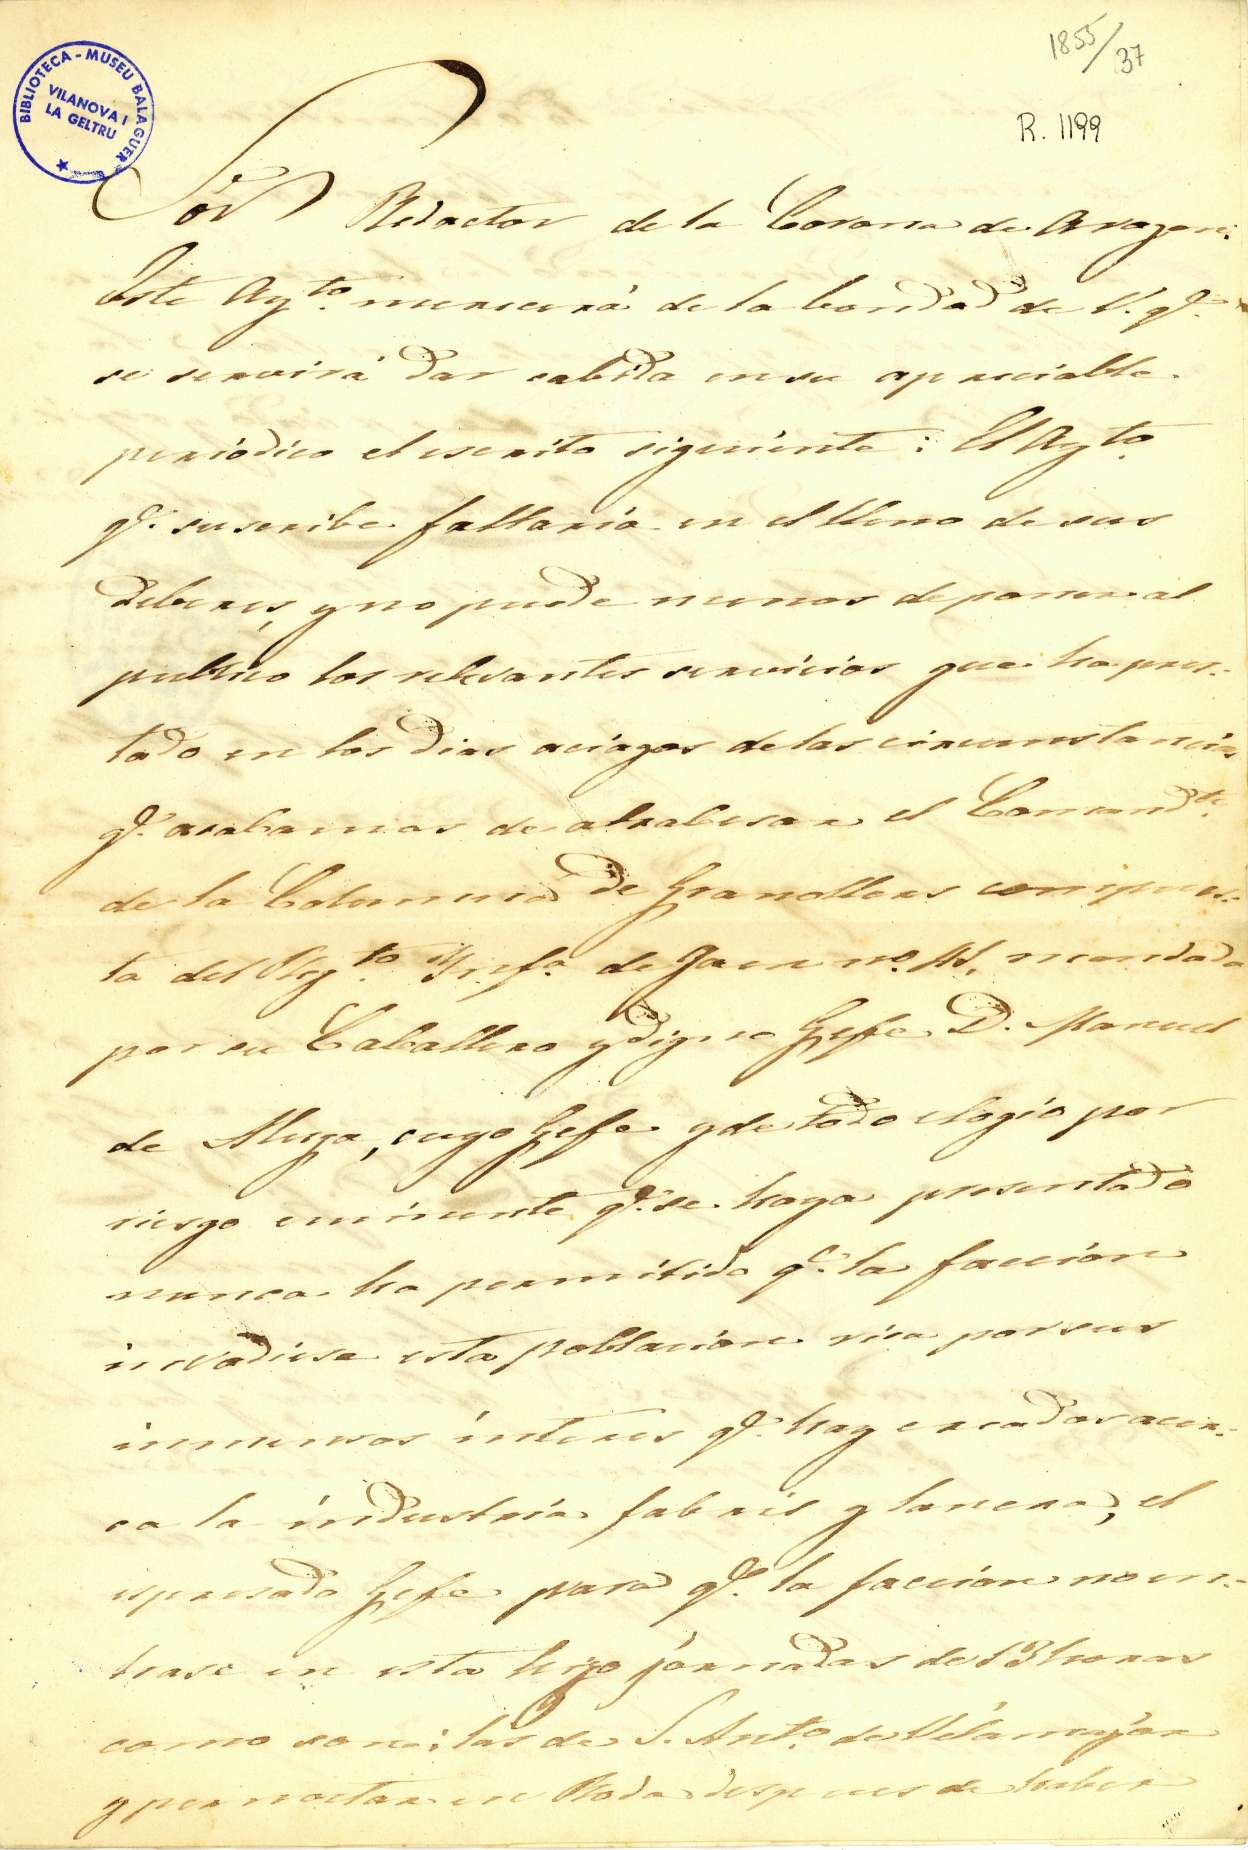 1855/37
R. 1199
BIBLIOTECA - MUSEU BALAGUER
VILANOVA I
LA GELTRU
Sor Redactor de la Corona de Aragon:
Este Aytto. merecerá de la bondad de V. qe.
se servirá dar cabida en su apreciable
periódico el escrito siguiente: El Aytto.
qe. suscribe faltaria en el lleno de sus
deberes, y no puede menos de poner al
publico los relevantes servicios que ha pres-
tado en los dias aciagos de las circunstancias
qe. acabamos de atrabesar el Comandte.
de la Columna de Granollers compues-
ta del Regto. Infa. de Jaen no. mandada
por su Caballero y digno Gefe D. Manuel
de Muga, cuyo Gefe y de todo elogio por
riesgo eminente qe. se haya presentado
nunca ha permitido qe. la faccion
invadiese esta poblacion rica por sus
inmensos interes qe. hay creados acer-
ca la industria fabril y lanera, el
espresado Gefe para qe. la faccion no en-
trase en esta hizo jornadas de 13 horas
como son: las de S. Anto. de Vilamajor
y pernoctar en Roda despues de haber